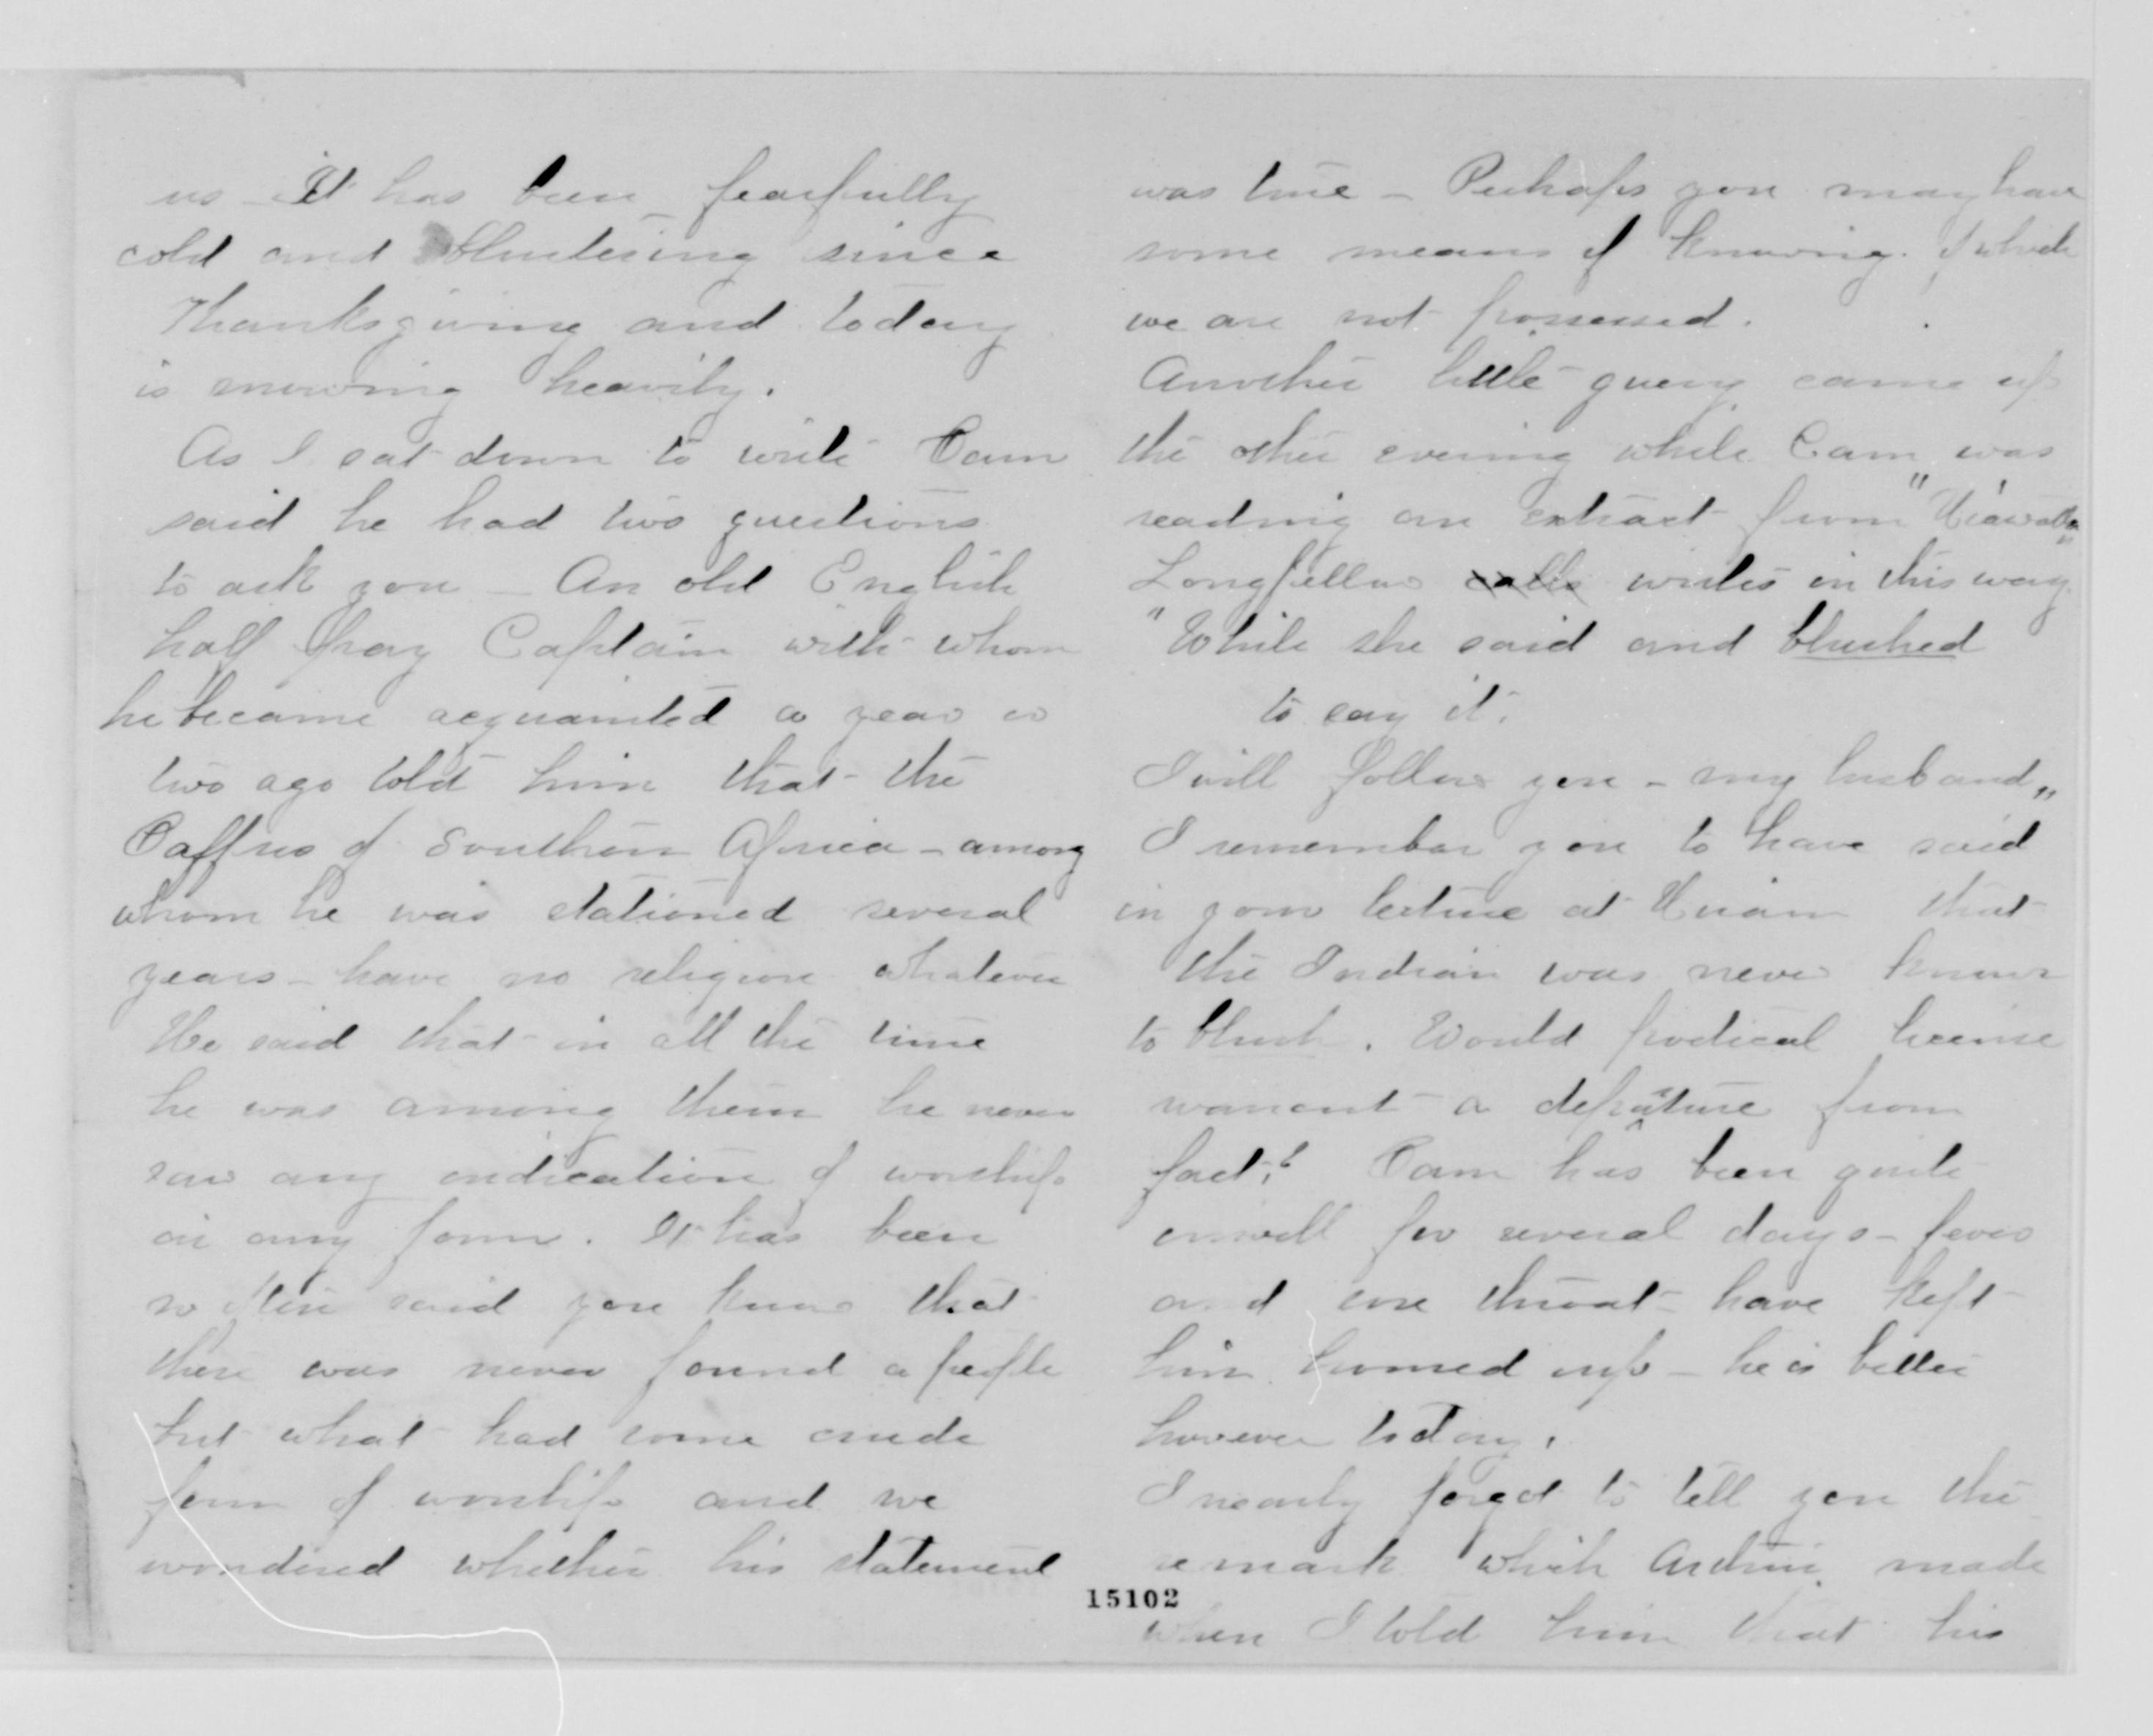 us - It has been fearfully
cold and blustering since
Thanksgiving and today
is snowing heavily.
As I sat down to write Cam
said he had two questions
to ask you - An old English
half pay Captain with whom
he became acquainted a year or
two ago told him that the
Caffres of Southern Africa - among
whom he was stationed several
years - have no religion whatever
He said that in all the time
he was among them he never
saw any indication of worship
in any form. It has been
so often said you know that
there was never found a people
but what had some crude
form of worship and we
wondered whether his statement
was true - Perhaps you may have
some means of knowing of which
we are not possessed.
Another little query came up
the other evening while Cam was
reading an extract from "Hiawatha"
Longfellow calls writes in this way
"While she said and blushed
to say it.
I will follow you - my husband"
I remember you to have said
in your lecture at Hiram that
the Indian was never known
to blush. Would poetical license
warrant a departure from
fact? Cam has been quite
unwell for several days - fever
and sore throat have kept
him housed up - he is better
however today.
I nearly forgot to tell you the
remark which made
when I told him that his
15102